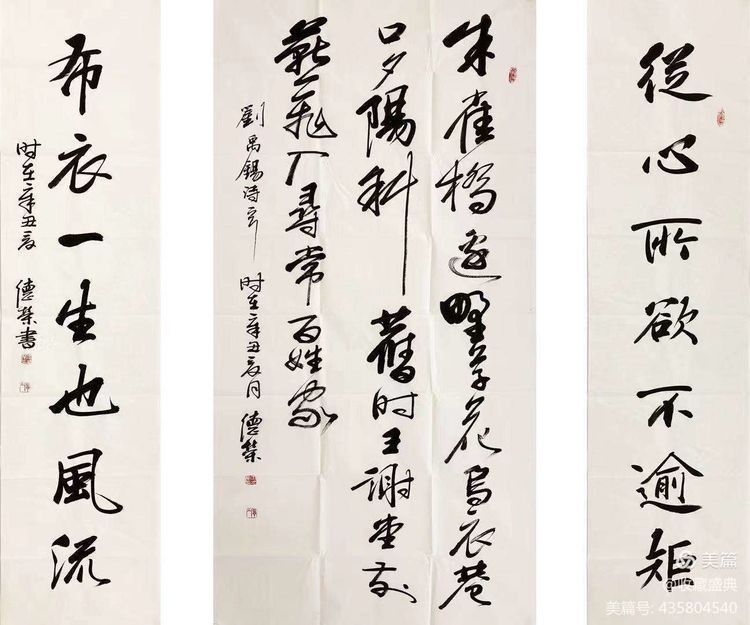 從心所欲不逾矩
朱雀橋边野草花烏衣巷
口夕陽斜舊时王謝堂前
燕飛入尋常百姓家
劉禹錫诗 时在辛丑夏月 德榮
布衣一生也風流
时在辛丑夏 德榮書
美篇
@收藏盛典
美篇号: 435804540